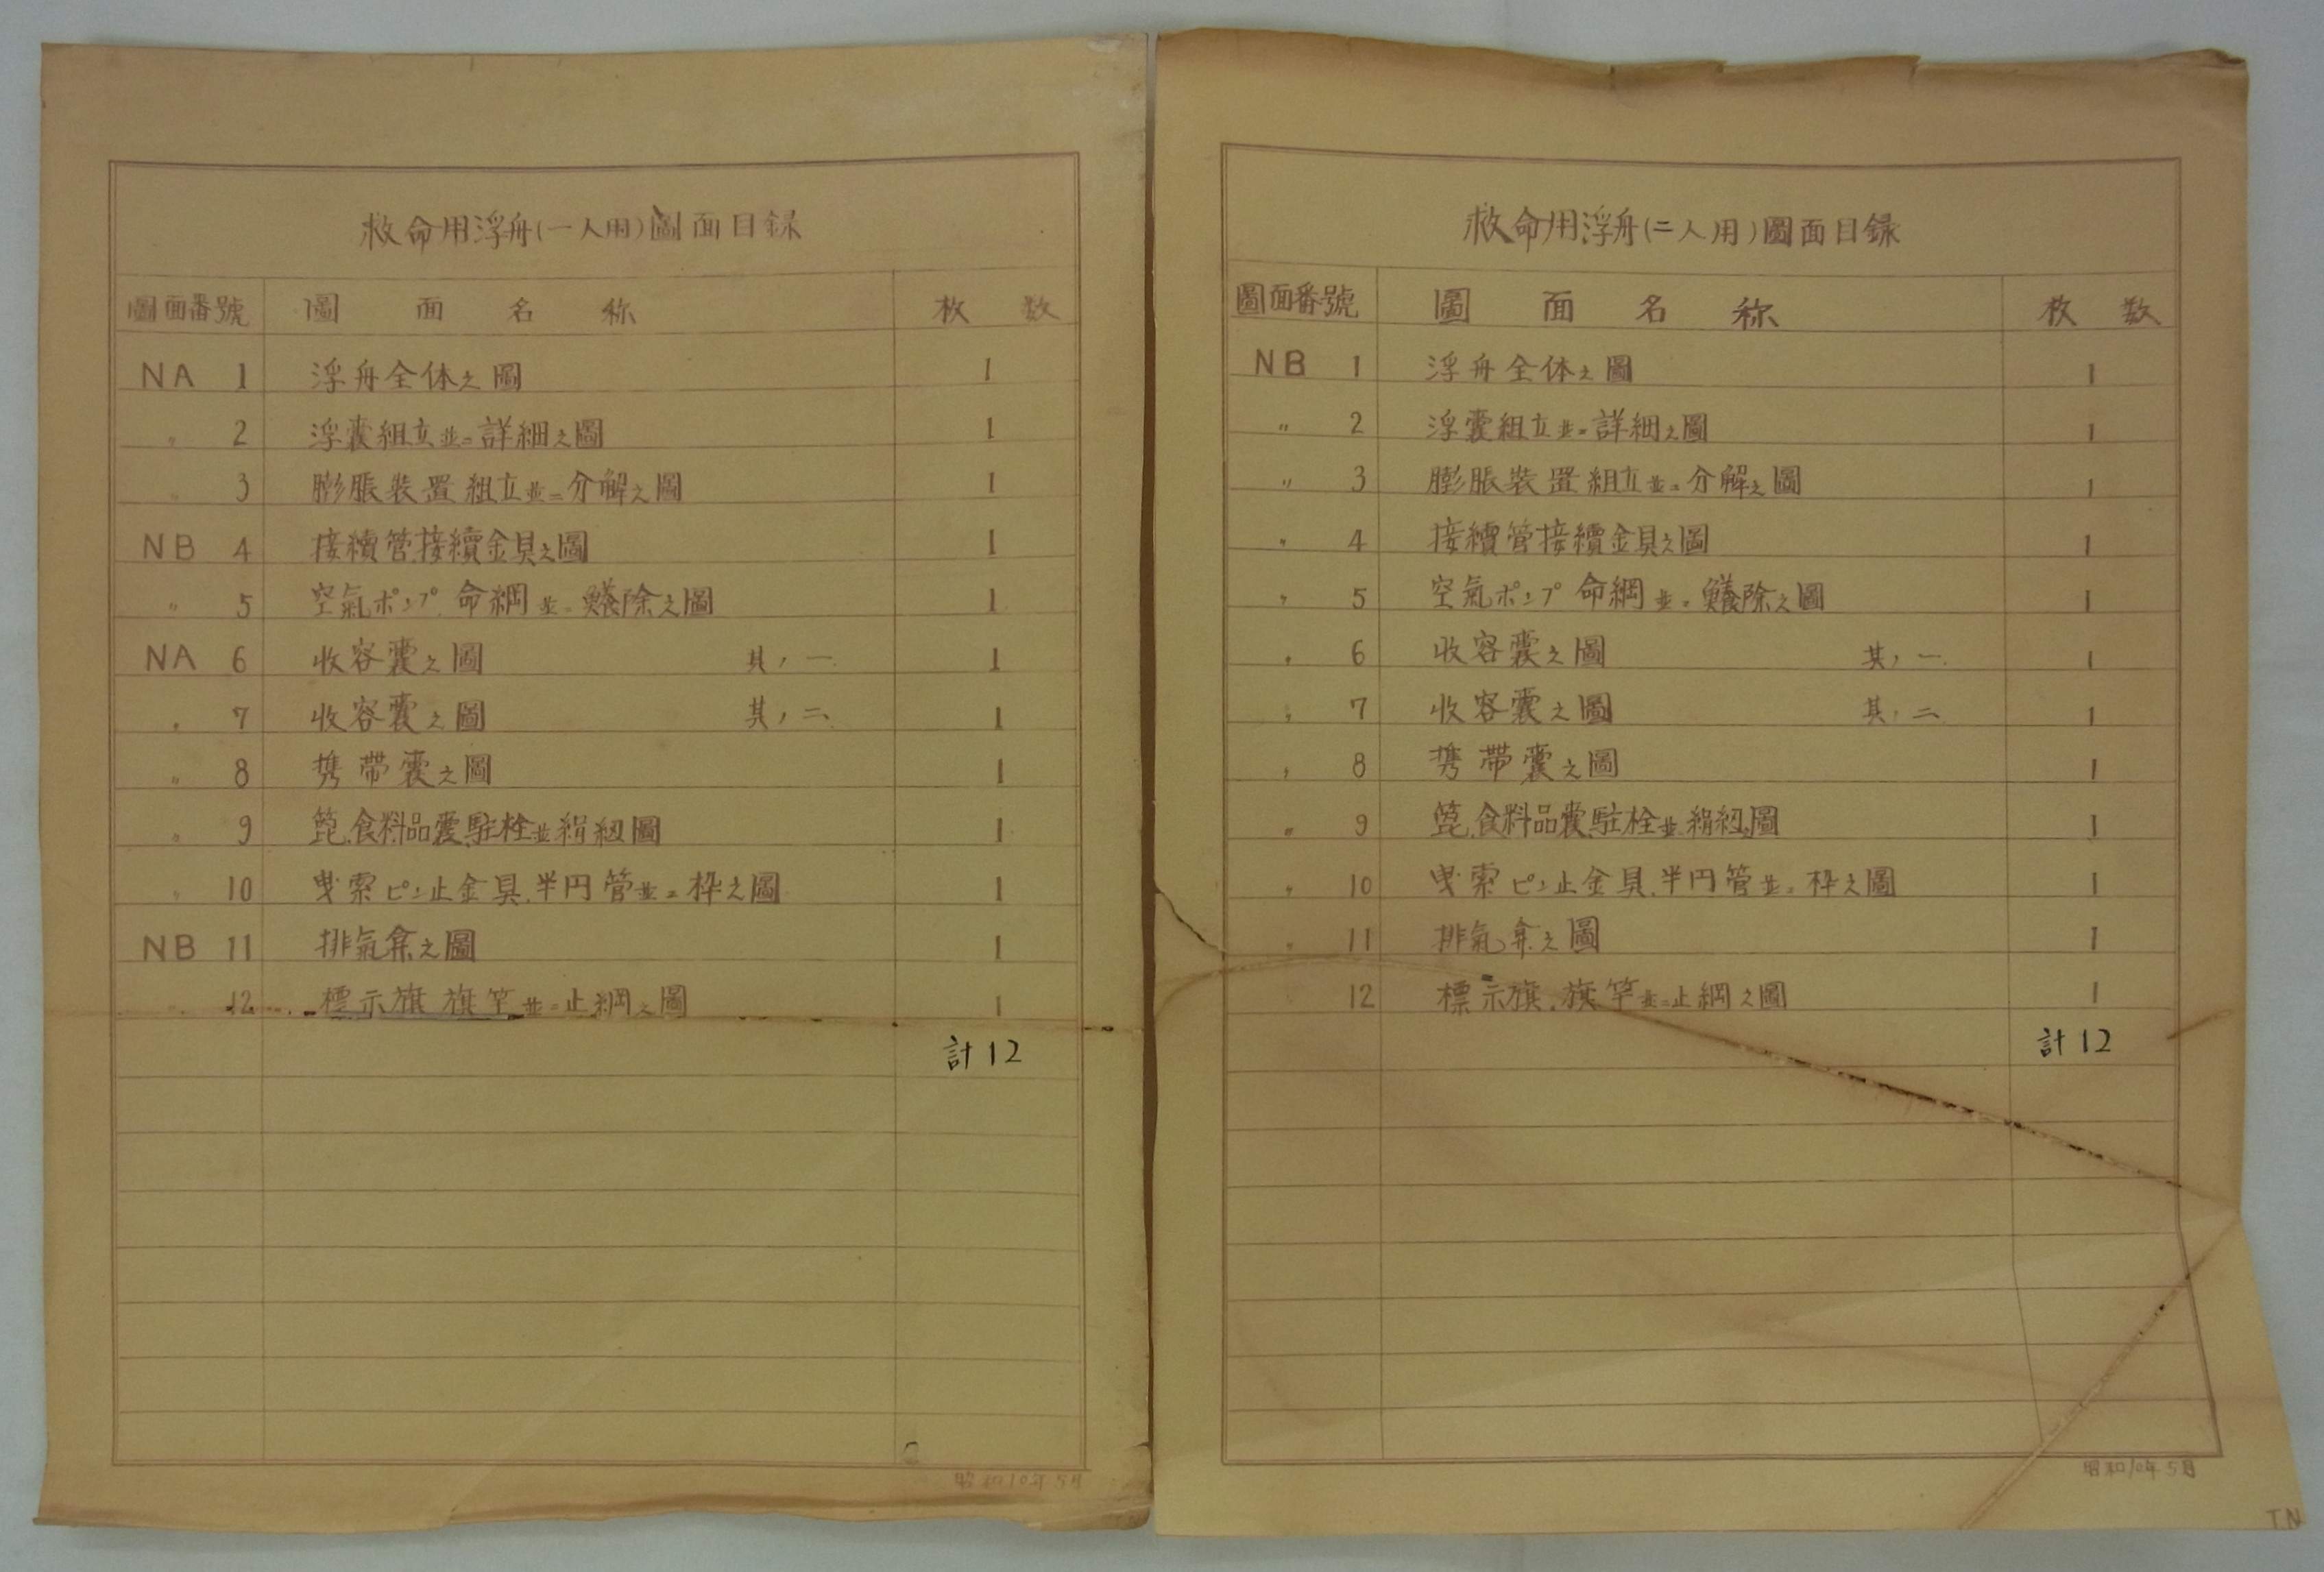 救命用浮舟(一人用)圖面目録
圖面番號 圖面名称 枚数
NA 1 浮舟全体之圖 1
〃 2 浮嚢組立並ニ詳細之圖 1
〃 3 膨脹装置組立並ニ分解之圖 1
NB 4 接續管接續金具之圖 1
〃 5 空氣ポンプ 命綱並ニ鱶除之圖 1
NA 6 收容嚢之圖 其ノ一 1
〃 7 收容嚢之圖 其ノ二 1
〃 8 携帯嚢之圖 1
〃 9 箆.食料品嚢.駐栓並絹紐圖 1
〃 10 曳索ピン止金具.半円管並ニ枠之圖 1
NB 11 排氣弇之圖 1
〃 12 標示旗 旗竿並ニ止綱之圖 1
計12
昭和10年5月
救命用浮舟(二人用)圖面目録
圖面番號 圖面名称 枚数
NB 1 浮舟全体之圖 1
〃 2 浮嚢組立並ニ詳細之圖 1
〃 3 膨脹装置組立並ニ分解之圖 1
〃 4 接續管接續金具之圖 1
〃 5 空氣ポンプ 命綱並ニ鱶除之圖 1
〃 6 收容嚢之圖 其ノ一 1
〃 7 收容嚢之圖 其ノ二 1
〃 8 携帯嚢之圖 1
〃 9 箆.食料品嚢.駐栓並絹紐圖 1
〃 10 曳索ピン止金具.半円管並ニ枠之圖 1
〃 11 排氣弇之圖 1
12 標示旗.旗竿並ニ止綱之圖 1
計12
昭和10年5月
T.N